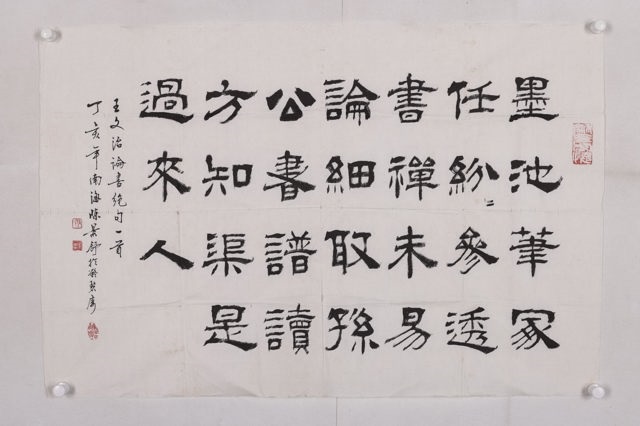 墨池筆冢
任紛〻參透
書禪未易
論細取孫
公書譜讀
方知渠是
過來人
王文治論書絕句一首
丁亥年南海陳景舒於